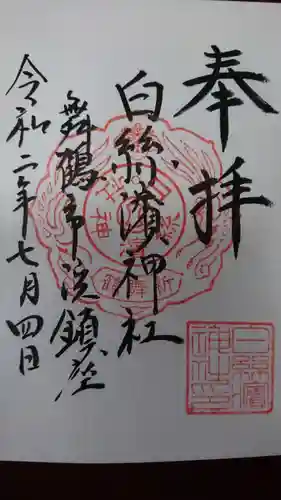 奉拝
白絲濱神社
舞鶴市浜鎮座
令和二年七月四日
白絲濱
神社印